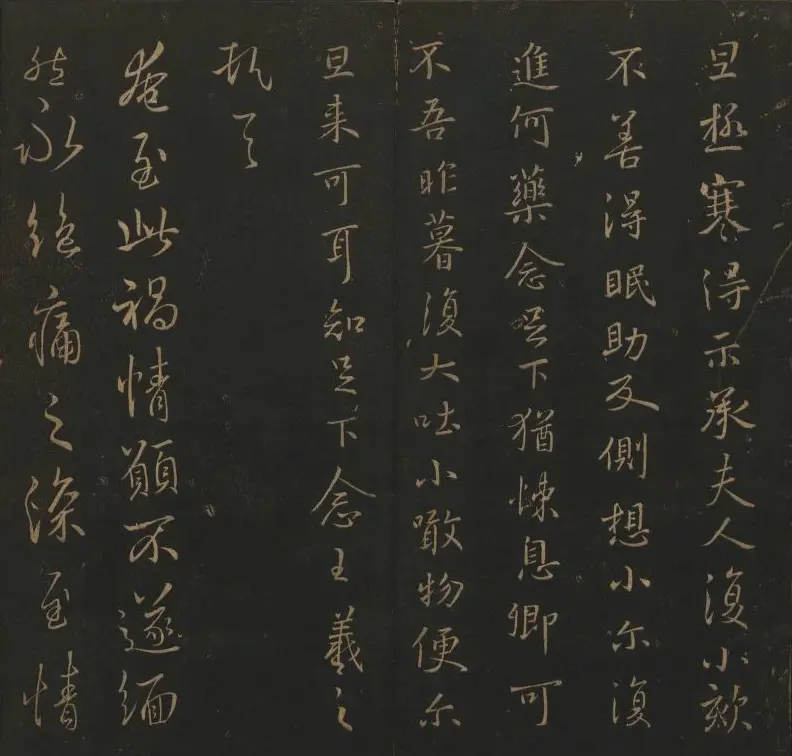 旦極寒得示承夫人復小欬
不善得眠助反側想小尔復
進何藥念足下猶悚息卿可
不吾昨暮復大吐小噉物便尔
旦来可耳知足下念王羲之
頓首
奄至此禍情願不遂緬
然永絕痛之深至情